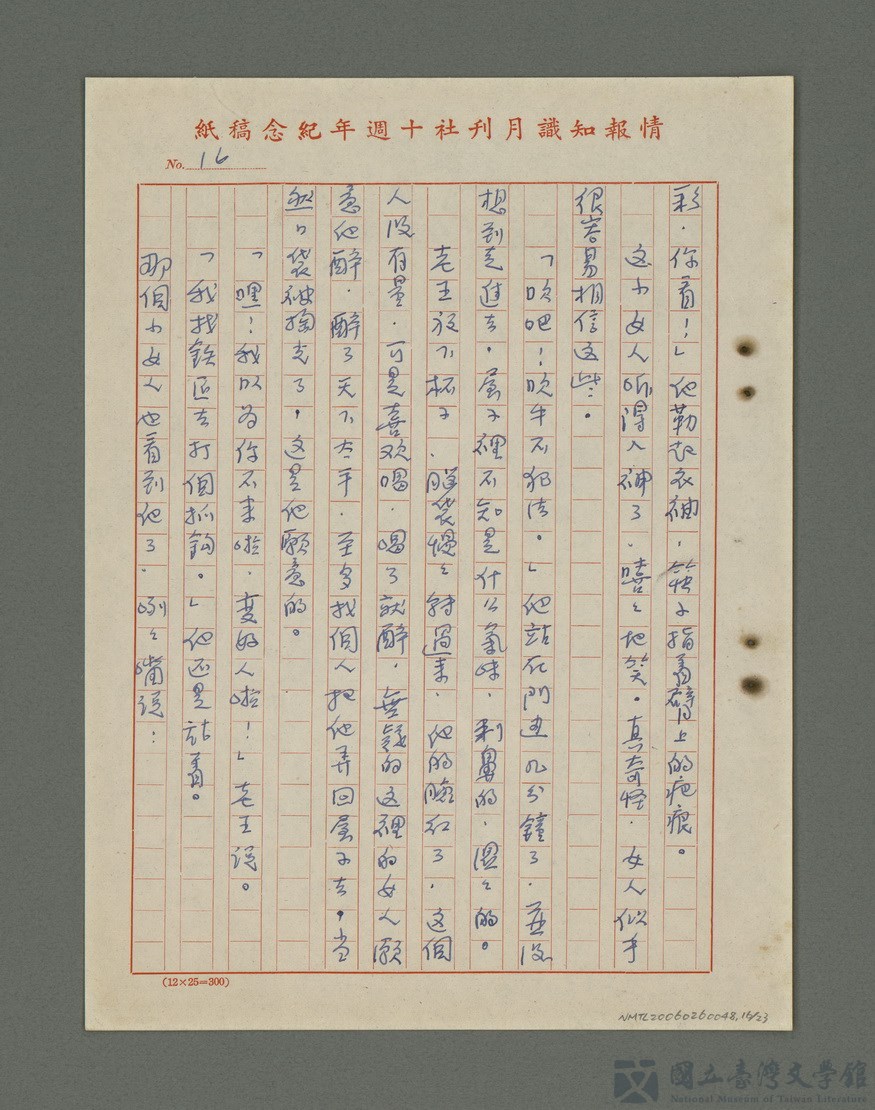 情報知識月刊社十週年紀念稿紙
No. 16
彩．你看！」他勒起衣袖．筷子指着臂上的疤痕。
這小女人听得入神了．嘻〻地笑。真奇怪．女人似乎
很容易相信這些。
「吹吧！吹牛不犯法。」他站在門边几分鐘了．並没
想到走進去．屋子裡不知是什么氣味．刺鼻的．濕〻的。
老王放下杯子．腦袋慢〻轉過來．他的臉红了．這個
人没有量．可是喜欢喝．喝了就醉．無疑的这裡的女人願
意他醉．醉了天下太平．至多找個人把他弄回屋子去．当
然口袋被掏光了，这是他願意的。
「嘿！我以為你不来啦．变好人啦！」老王説。
「我找鉄匠去打個抓鈎。」他还是站着。
那個小女人也看到他了．咧〻嘴説：
(12×25=300)
NMTL20060260048,16/23
國立臺灣文學館
National Museum of Taiwan Literature